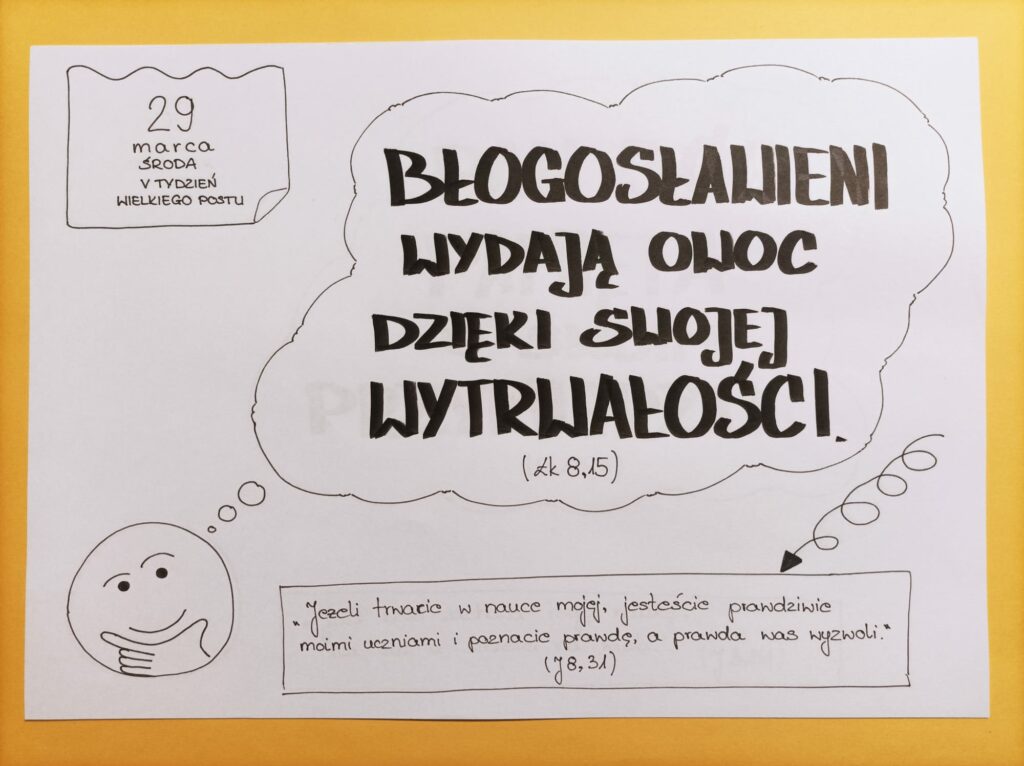 29
marca
ŚRODA
V TYDZIEŃ
WIELKIEGO POSTU
BŁOGOSŁAWIENI
WYDAJĄ OWOC
DZIĘKI SWOJEJ
WYTRWAŁOŚCI.
(Łk 8,15)
„Jeżeli trwacie w nauce mojej, jesteście prawdziwie
moimi uczniami i poznacie prawdę, a prawda was wyzwoli."
(J 8,31)